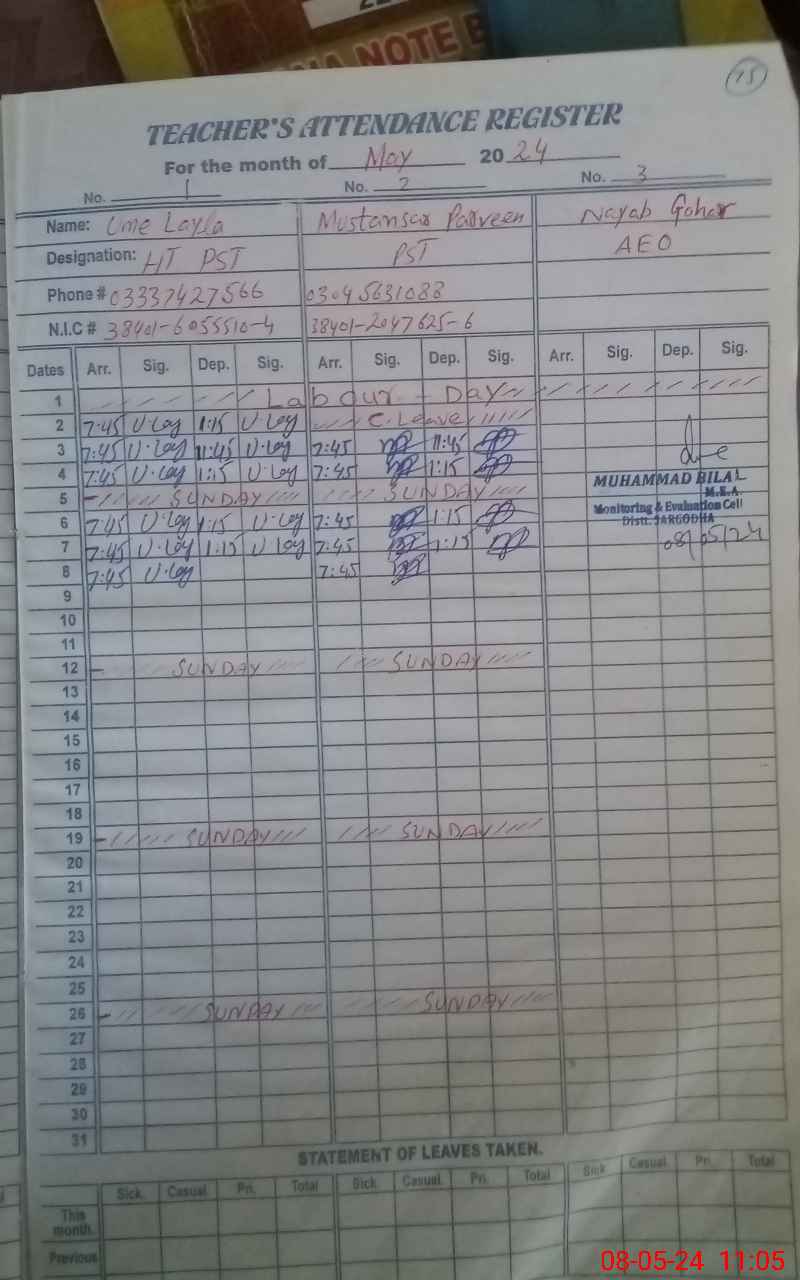 NA NOTE B
15
TEACHER'S ATTENDANCE REGISTER
For the month of May 2024
No. 1 No. 2 No. 3
Name: Ume Layla Mustansar Parveen Nayab Gohar
Designation: HT PST PST AEO
Phone # 03337427566 03045631088
N.I.C # 38401-6055510-4 38401-2047625-6
Dates Arr. Sig. Dep. Sig. Arr. Sig. Dep. Sig. Arr. Sig. Dep. Sig.
1 Labour - Day
2 7:45 U.Lay 1:15 U.Lay C.Leave
3 7:45 U.Lay 11:45 U.Lay 7:45 11:45
4 7:45 U.Lay 1:15 U.Lay 7:45 1:15
5 SUNDAY SUNDAY
MUHAMMAD BILAL
M.E.A.
Monitoring & Evaluation Cell
Distt. SARGODHA
08/05/24
6 7:45 U.Lay 1:15 U.Lay 7:45 1:15
7 7:45 U.Lay 1:15 U.Lay 7:45 1:15
8 7:45 U.Lay 7:45
9
10
11
12 SUNDAY SUNDAY
13
14
15
16
17
18
19 SUNDAY SUNDAY
20
21
22
23
24
25
26 SUNDAY SUNDAY
27
28
29
30
31
STATEMENT OF LEAVES TAKEN.
Sick. Casual. Pri. Total Sick. Casual. Pri. Total Sick Casual. Pri. Total
This month.
Previous
08-05-24 11:05